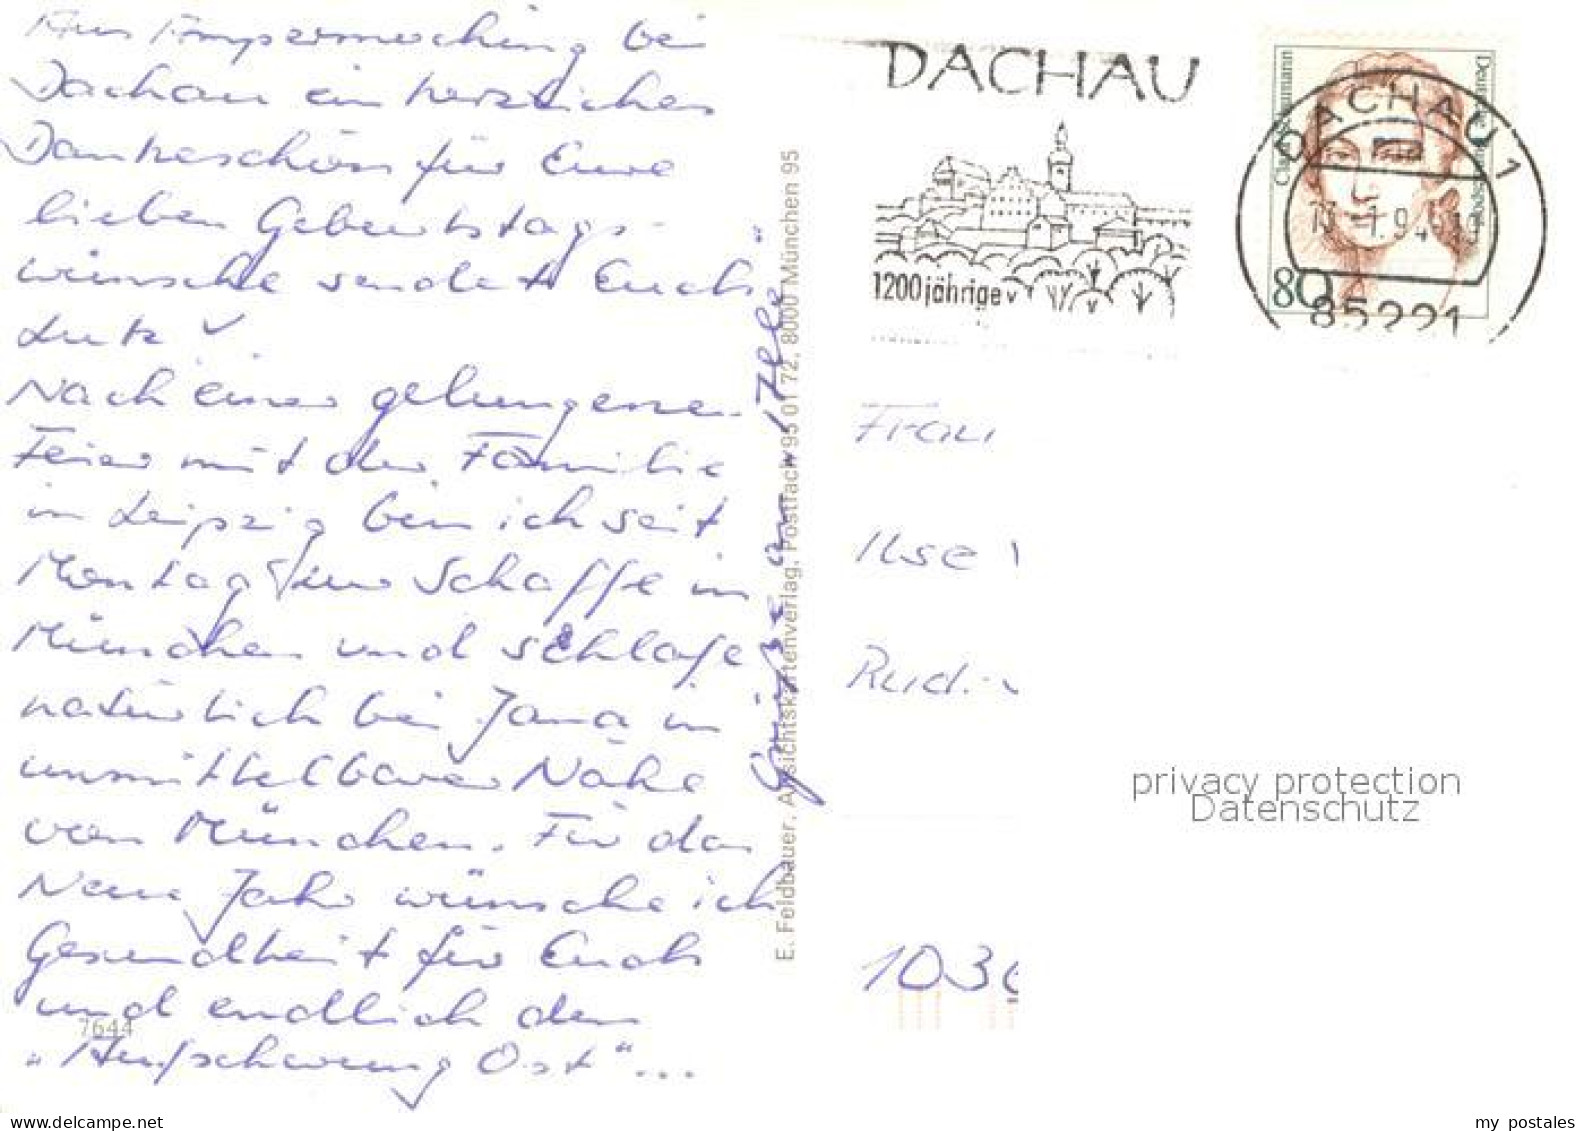 Aus Ampermoching bei
Dachau ein herzliches
Dankeschön für Eure
lieben Geburtstags-
wünsche sendet Euch
Lutz
Nach einer gelungenen
Feier mit der Familie
in Leipzig bin ich seit
Montag zur Schaffe in
München und schlafe
natürlich bei Jana in
unmittelbarer Nähe
von München. Für das
Neue Jahr wünsche ich
Gesundheit für Euch
und endlich den
"Aufschwung Ost"...
7644
Grüße an
E. Feldbauer, Ansichtskartenverlag, Postfach 95 01 72, 8000 München 95
DACHAU
1200jährige
DACHAU 1
85221
80
Deutsche Bundespost
Frau
Ilse
Rud
1036
privacy protection
Datenschutz
www.delcampe.net
my postales